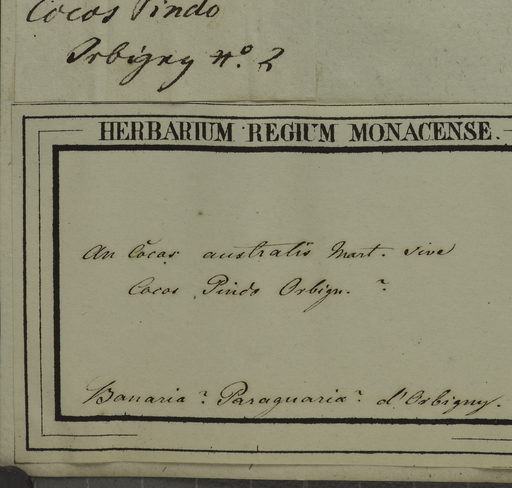 Cocos Pindo
Orbigny nº. 2
HERBARIUM REGIUM MONACENSE.
An Cocos australis Mart. sive
Cocos Pindo Orbign. ?
Bonaria ? Paraguaria ? d'Orbigny.